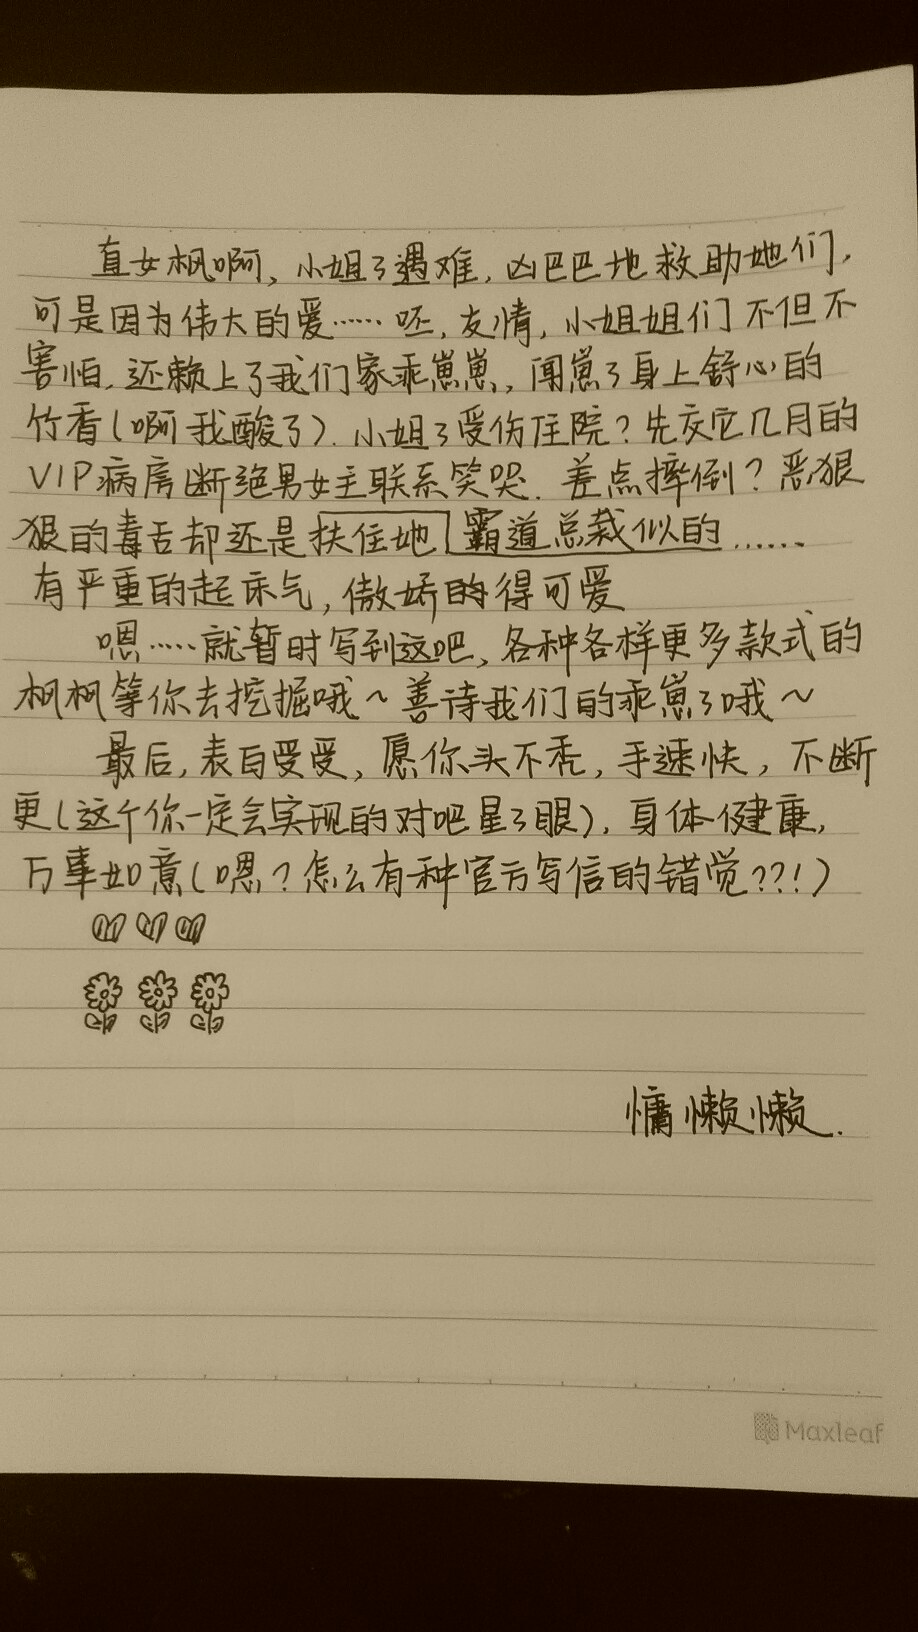 直女枫啊,小姐了遇难,凶巴巴地救助她们,
可是因为伟大的爱……呸,友情,小姐姐们不但不
害怕,还赖上了我们家乖崽崽,闻崽了身上舒心的
竹香(啊我酸了).小姐了受伤住院?先交它几月的
VIP病房断绝男女主联系笑哭.差点摔倒?恶狠
狠的毒舌却还是扶住她 霸道总裁似的……
有严重的起床气,傲娇的得可爱
嗯……就暂时写到这吧,各种各样更多款式的
枫枫等你去挖掘哦~善待我们的乖崽了哦~
最后,表白受受,愿你头不秃,手速快,不断
更(这个你一定会实现的对吧星了眼),身体健康,
万事如意(嗯?怎么有种官方写信的错觉??!)
慵懒懒.
Maxleaf